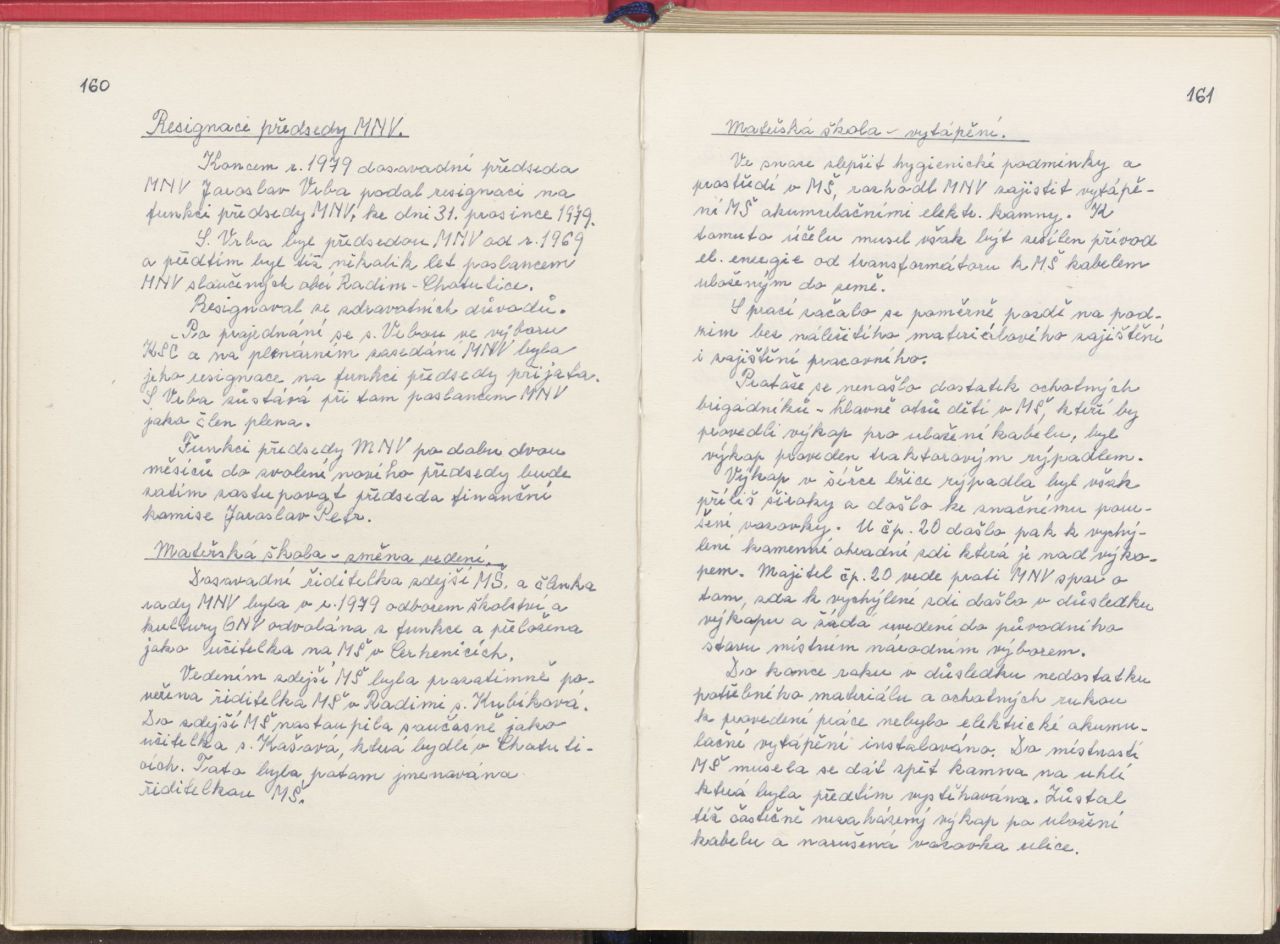 160
Resignace předsedy MNV.
Koncem r. 1979 dosavadní předseda
MNV Jaroslav Vrba podal resignaci na
funkci předsedy MNV, ke dni 31. prosince 1979.
S. Vrba byl předsedou MNV od r. 1969
a předtím byl též několik let poslancem
MNV sloučených obcí Radim-Chotutice.
Resignoval ze zdravotních důvodů.
Po projednání se s. Vrbou ve výboru
KSČ a na plenárním zasedání MNV byla
jeho resignace na funkci předsedy přijata.
S. Vrba zůstává při tom poslancem MNV
jako člen plena.
Funkci předsedy MNV po dobu dvou
měsíců do zvolení nového předsedy bude
zatím zastupovat předseda finanční
komise Jaroslav Petr.
Mateřská škola - změna vedení.
Dosavadní ředitelka zdejší MŠ. a členka
rady MNV byla v r. 1979 odborem školství a
kultury ONV odvolána z funkce a přeložena
jako učitelka na MŠ v Cerhenicích.
Vedením zdejší MŠ byla prozatimně po-
věřena ředitelka MŠ v Radimi s. Kubíková.
Do zdejší MŠ nastoupila současně jako
učitelka s. Kašová, která bydlí v Chotuti-
cích. Tato byla potom jmenována
ředitelkou MŠ.
161
Mateřská škola - vytápění.
Ve snaze zlepšit hygienické podmínky a
prostředí v MŠ, rozhodl MNV zajistit vytápě-
ní MŠ akumulačními elektr. kamny. K
tomuto účelu musel však být zesílen přívod
el. energie od transformátoru k MŠ kabelem
uloženým do země.
S prací začalo se poměrně pozdě na pod-
zim bez náležitého materiálového zajištění
i zajištění pracovního.
Protože se nenašlo dostatek ochotných
brigádníků - hlavně otců dětí v MŠ, kteří by
provedli výkop pro uložení kabelu, byl
výkop proveden traktorovým rýpadlem.
Výkop v šířce lžíce rýpadla byl však
příliš široký a došlo ke značnému poru-
šení vozovky. U čp. 20 došlo pak k vychý-
lení kamenné ohradní zdi která je nad výko-
pem. Majitel čp. 20 vede proti MNV spor o
tom, zda k vychýlení zdi došlo v důsledku
výkopu a žádá uvedení do původního
stavu místním národním výborem.
Do konce roku v důsledku nedostatku
potřebného materiálu a ochotných rukou
k provedení práce nebylo elektrické akumu-
lační vytápění instalováno. Do místností
MŠ musela se dát zpět kamna na uhlí
která byla předtím vystěhována. Zůstal
též částečně nezaházený výkop po uložení
kabelu a narušená vozovka ulice.